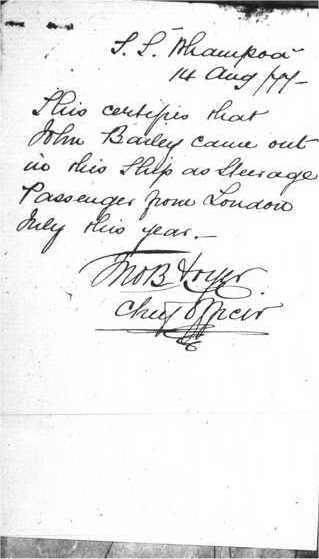 S. S. "Whampoa"
14 Aug /77-
This certifies that
John Bailey came out
in this Ship as Steerage
Passenger from London
July this year.-
Jno B Fryer.
Chief Officer